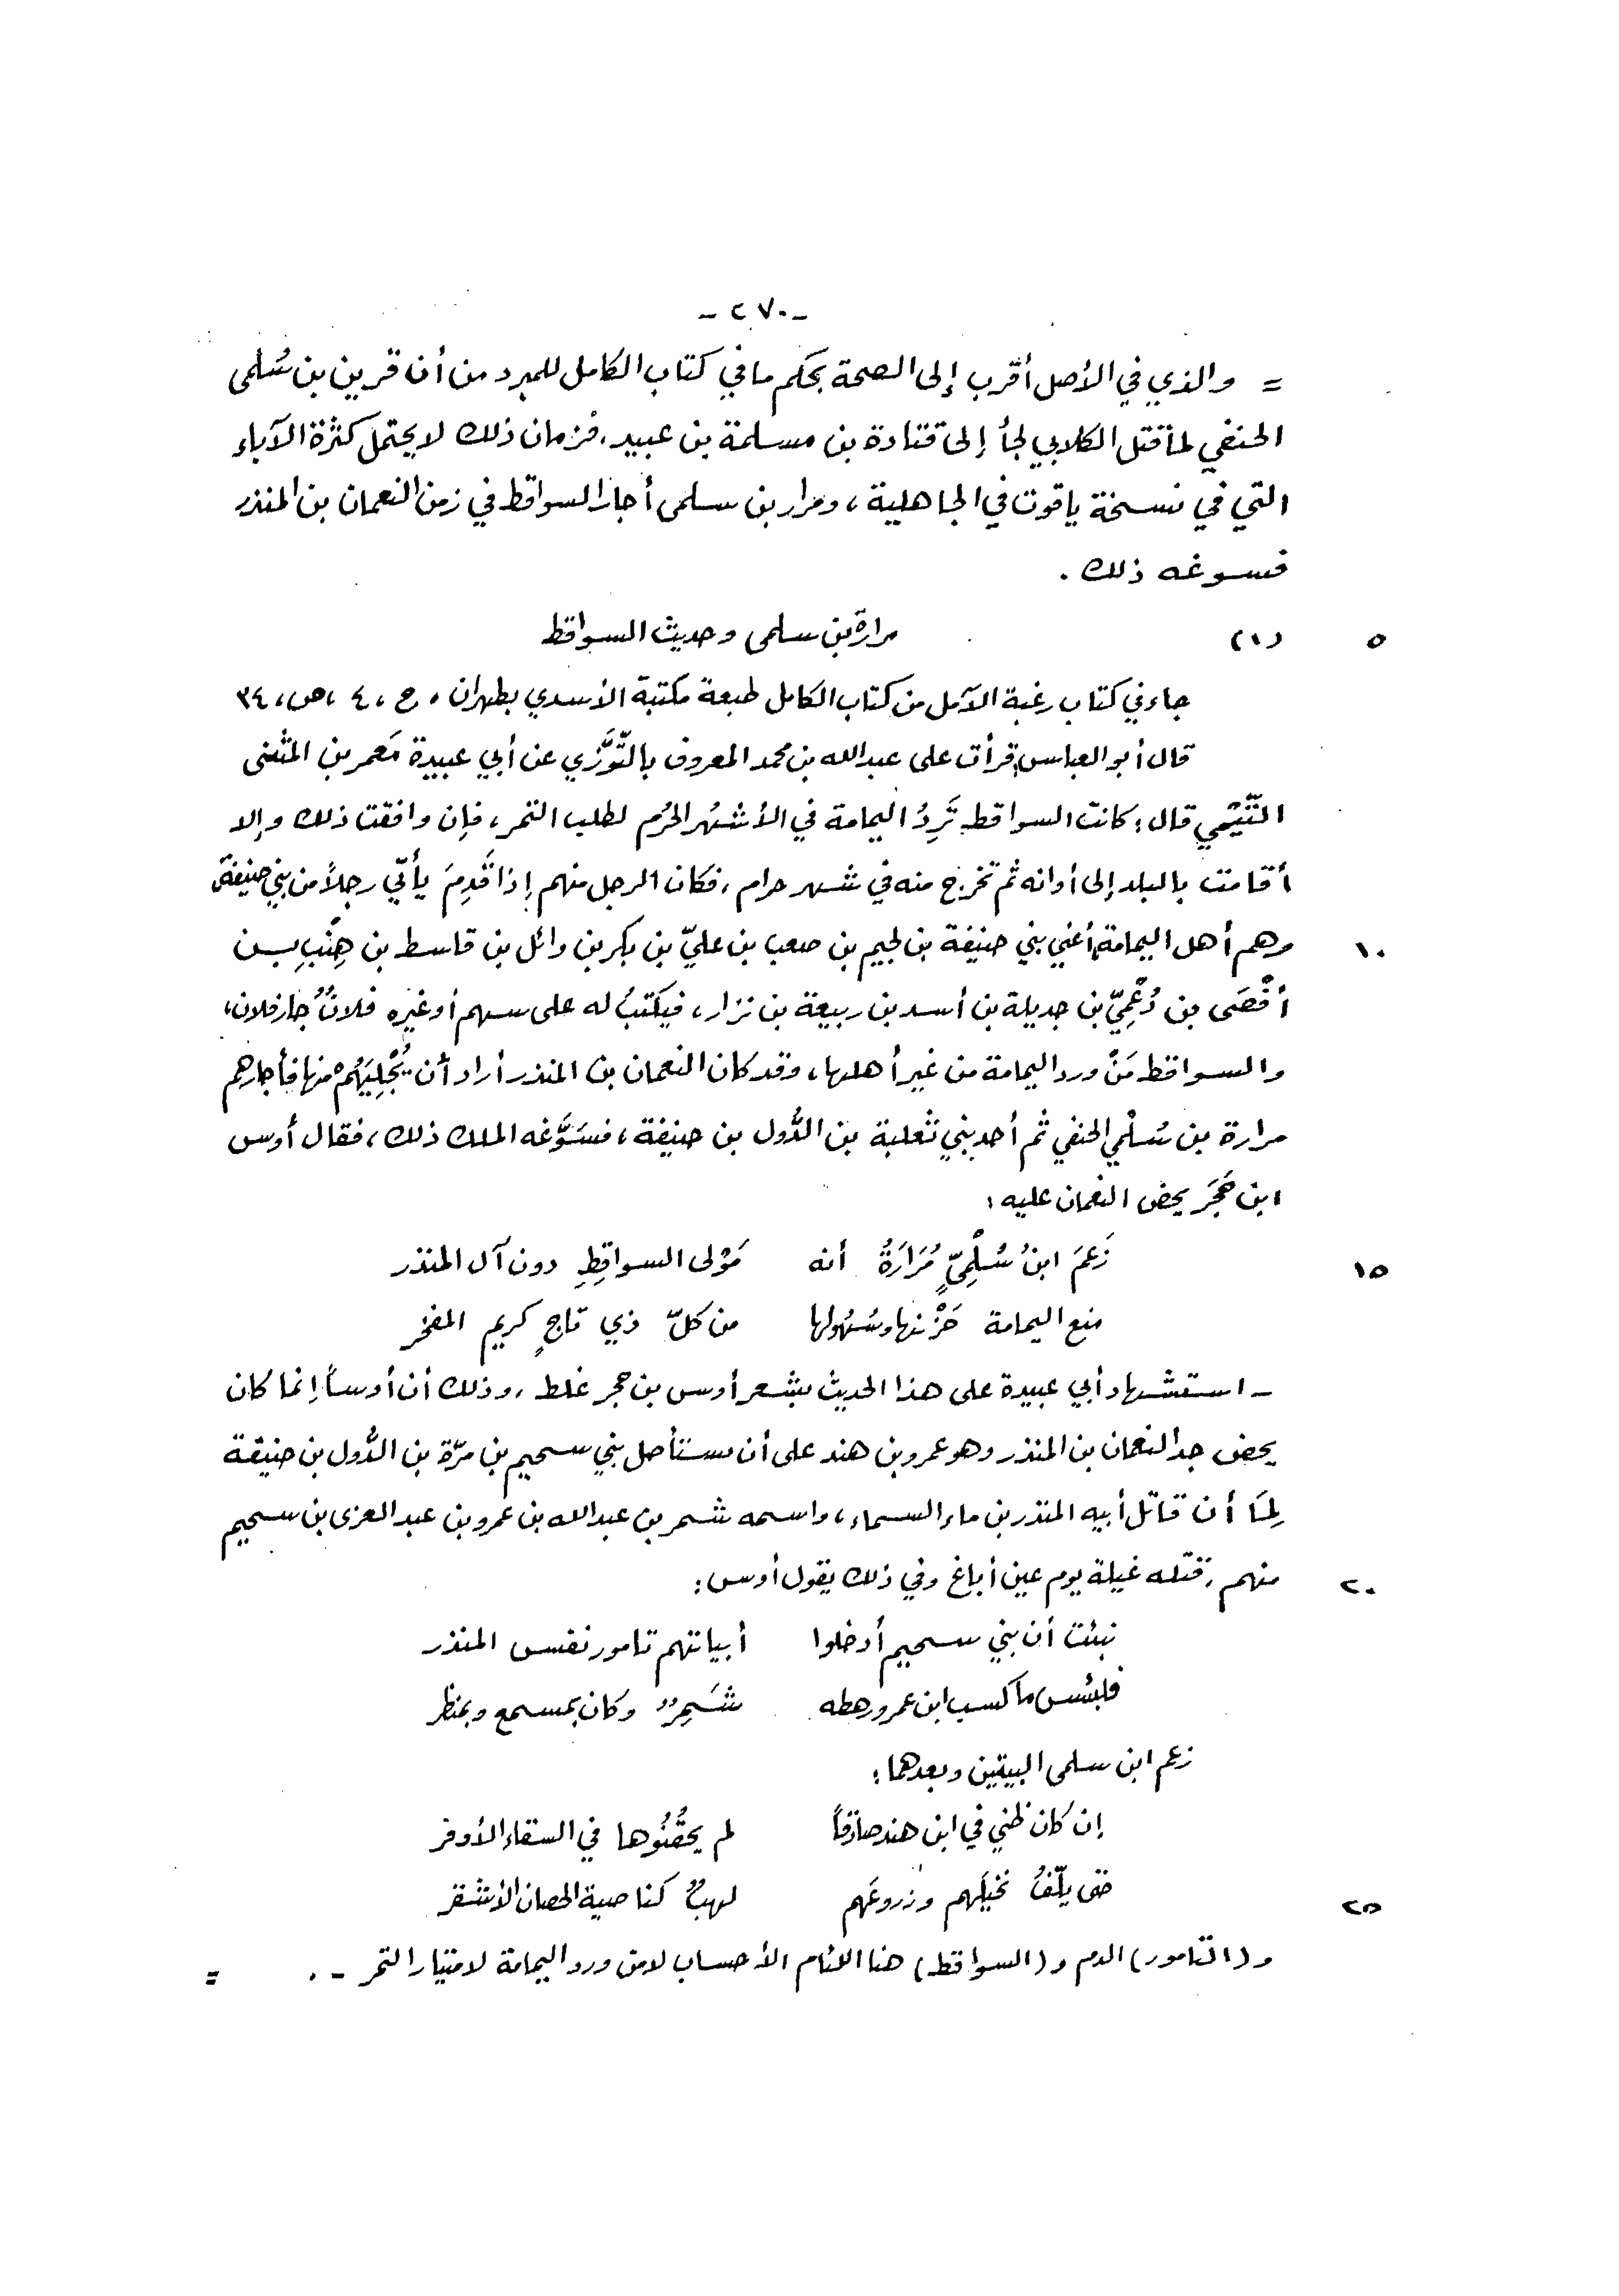 - ٢٧٠ -
= والذي في الأصل أقرب إلى الصحة بحكم ما في كتاب الكامل للمبرد من أن قرين بن سُلمى
الحنفي لما قتل الكلابي لجأ إلى قتادة بن مسلمة بن عبيد، فزمان ذلك لا يحتمل كثرة الآباء
التي في نسخة ياقوت في الجاهلية، ومرار بن سلمى أجار السواقط في زمن النعمان بن المنذر
فسوغه ذلك .
٥ (١) مرارة بن سلمى وحديث السواقط
جاء في كتاب رغبة الآمل من كتاب الكامل طبعة مكتبة الأسدي بطهران، ج، ٤، ص، ٣٤
قال أبو العباس: قرأت على عبدالله بن محمد المعروف بالتَّوَّزي عن أبي عبيدة مَعمر بن المثنى
التَّيْمي قال: كانت السواقط تَرِدُ اليمامة في الأشهُر الحُرُم لطلب التمر، فإن وافقت ذلك وإلا
أقامت بالبلد إلى أوانه ثم تخرج منه في شهر حرام، فكان الرجل منهم إذا قَدِمَ يأتي رجلاً من بني حنيفة،
١٠ وهم أهل اليمامة، أعني بني حنيفة بن لجيم بن صعب بن عليّ بن بكر بن وائل بن قاسط بن هِنْبِ بن
أفْصَى بن دُعْمِيّ بن جديلة بن أسد بن ربيعة بن نزار، فيكتبُ له على سهم أو غيره فلانٌ جار فلان،
والسواقط مَنْ ورد اليمامة من غير أهلها، وقد كان النعمان بن المنذر أراد أن يُجْلِيَهُمْ منها فأجارهم
مرارة بن سُلْمي الحنفي ثم أحد بني ثعلبة بن الدُّول بن حنيفة، فسَوَّغه الملك ذلك، فقال أوس
ابن حَجَر يحض النعمان عليه:
١٥ زَعَمَ ابنُ سُلْمِيٍّ مُرَارَةُ أنه مَوْلى السواقِطِ دون آل المنذر
منع اليمامة حَزْنها وسُهُولها من كلّ ذي تاجٍ كريم المفخر
- استشهاد أبي عبيدة على هذا الحديث بشعر أوس بن حجر غلط، وذلك أن أوساً إنما كان
يحض جد النعمان بن المنذر وهو عمرو بن هند على أن يستأصل بني سحيم بن مرّة بن الدُّول بن حنيفة
لِمَا أن قاتل أبيه المنذر بن ماء السماء، واسمه شمر بن عبدالله بن عمرو بن عبد العزى بن سحيم
٢٠ منهم، قتله غيلة يوم عين أباغ وفي ذلك يقول أوس:
نبئت أن بني سحيم أدخلوا أبياتهم تامور نفس المنذر
فلبئس ما كسب ابن عمرو رهطه شَمِرٌ وكان بمسمع وبمنظر
زعم ابن سلمى البيتين وبعدهما:
إن كان ظني في ابن هند صادقاً لم يحقُنُوها في السقاء الأوفر
٢٥ حتى يلّفُ نخيلَهم وزروعَهم لهبٌ كناصية الحصان الأشقر
و (التامور) الدم و (السواقط) هنا اللئام الأحساب لا من ورد اليمامة لامتيار التمر - . =